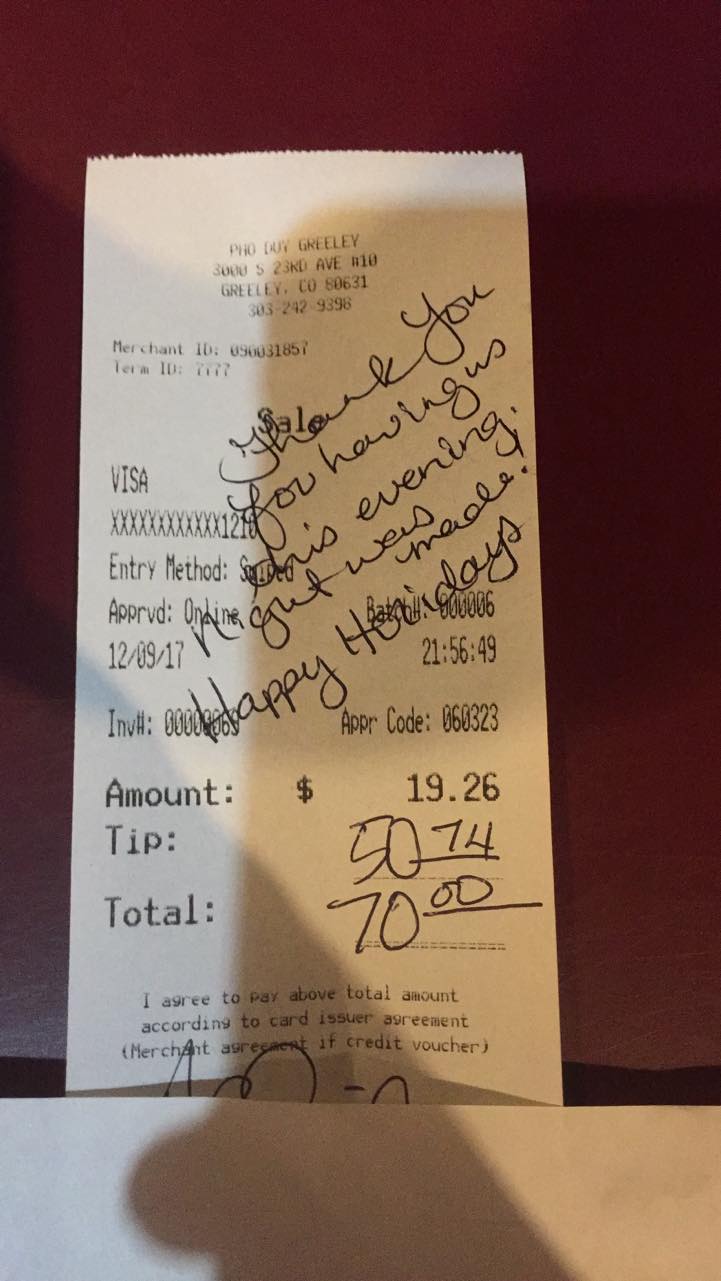 PHO DUY GREELEY
3000 S 23RD AVE #10
GREELEY, CO 80631
303-242-9398
Merchant ID: 090031857
Term ID: 7777
Sale
Thank You
for having us
this evening.
Night was made!
Happy Holidays
VISA
XXXXXXXXXXXX1210
Entry Method: Swiped
Apprvd: Online Batch#: 000006
12/09/17 21:56:49
Inv#: 00000069 Appr Code: 060323
Amount: $ 19.26
Tip: 50 74
Total: 70 00
I agree to pay above total amount
according to card issuer agreement
(Merchant agreement if credit voucher)